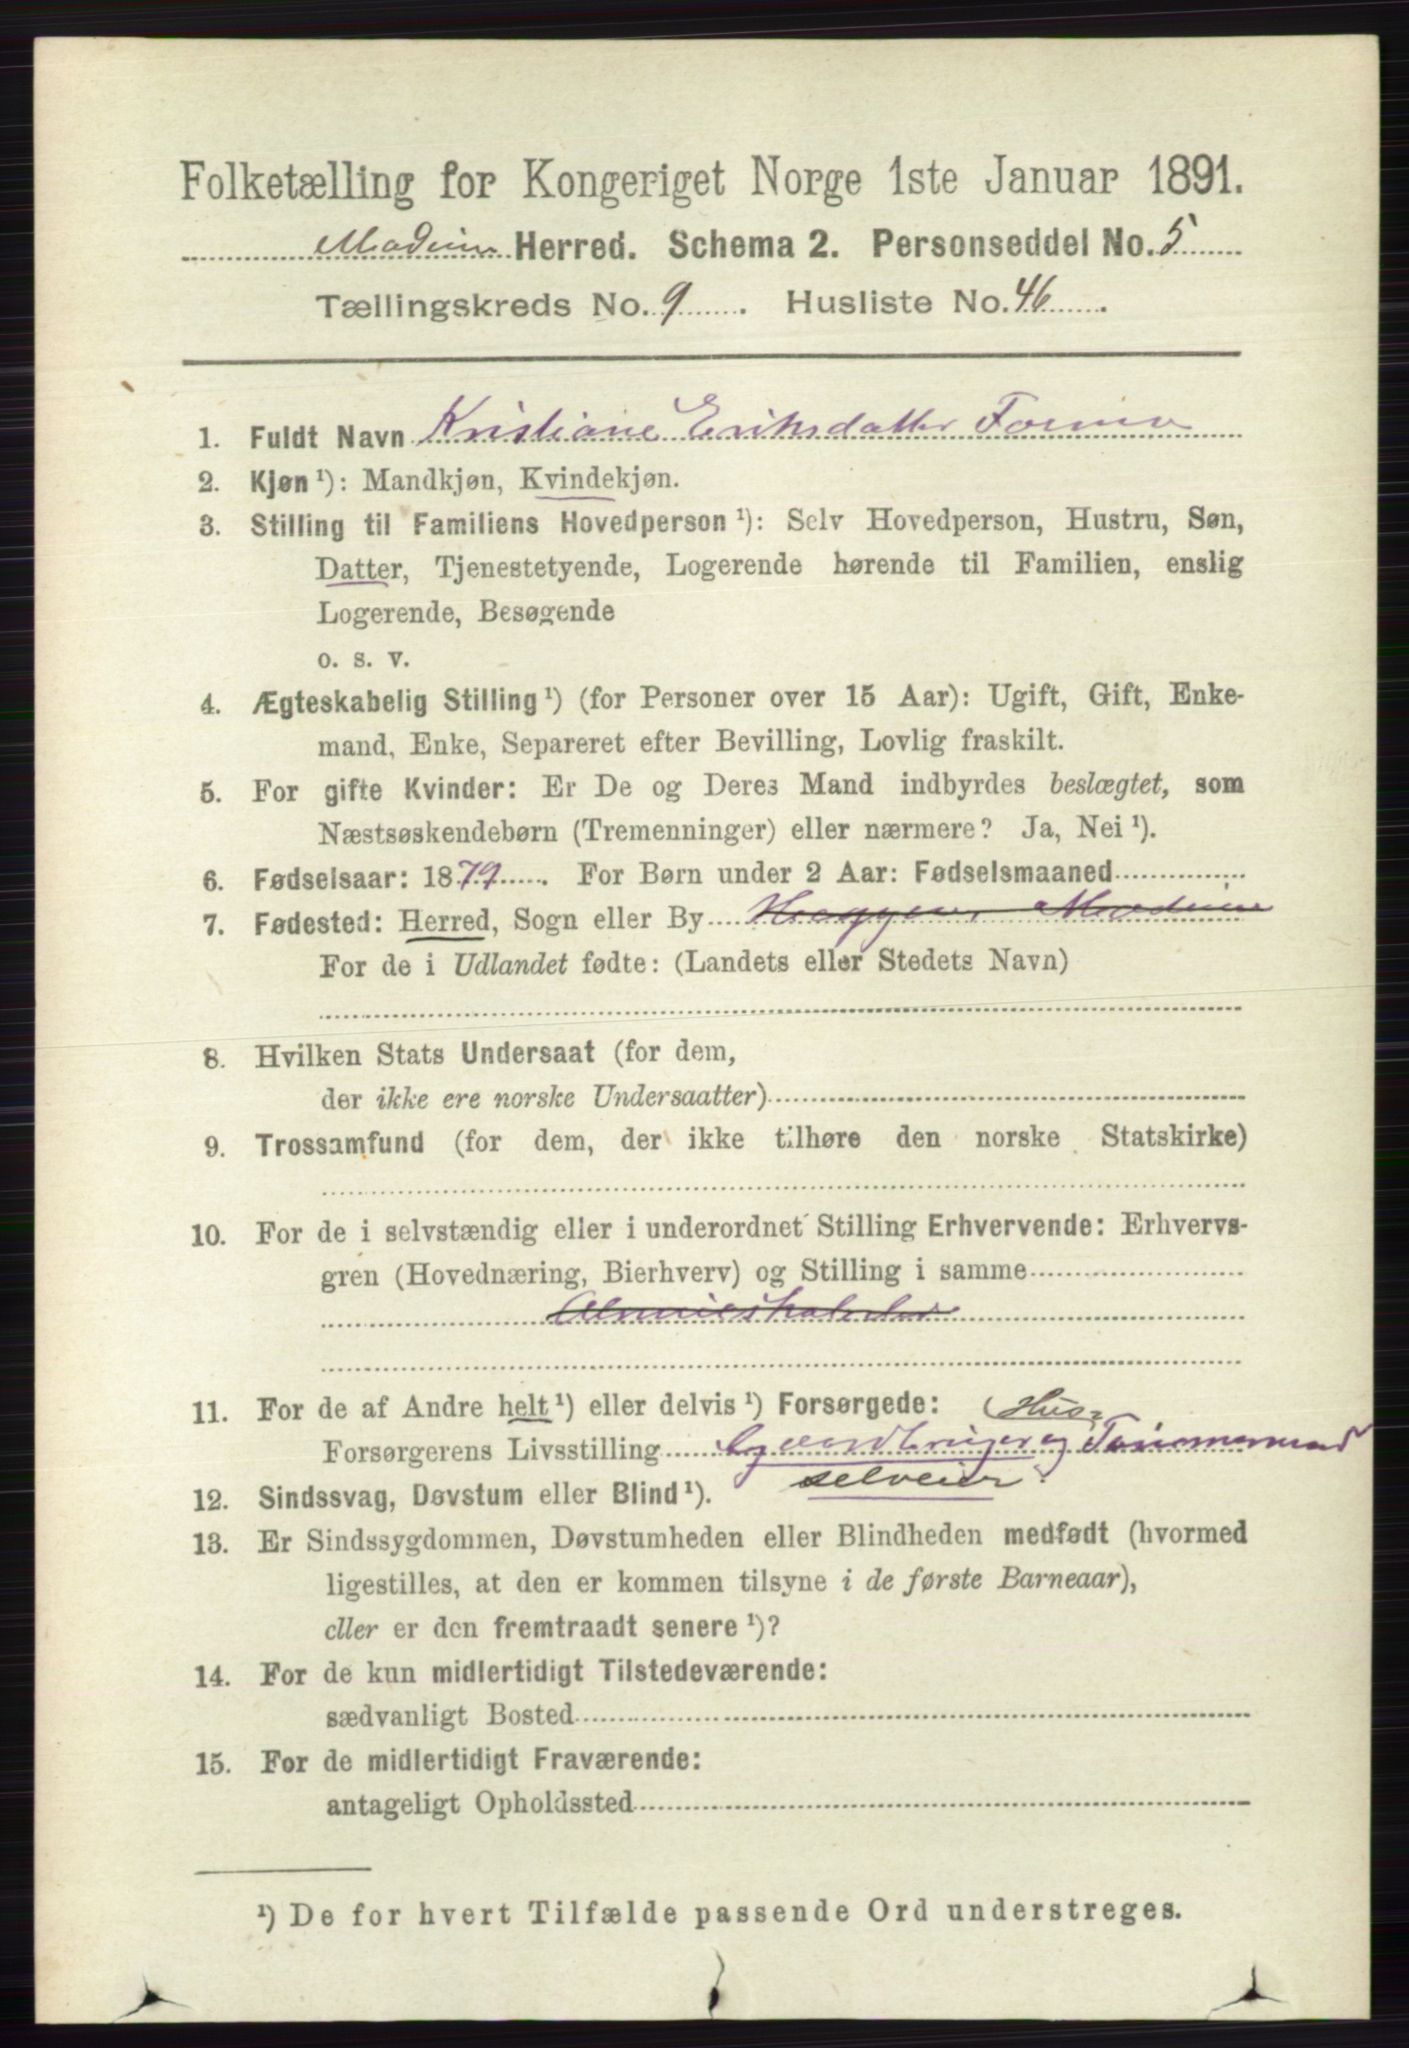 Folketælling for Kongeriget Norge 1ste Januar 1891.
Modum Herred. Schema 2. Personseddel No. 5
Tællingskreds No. 9. Husliste No. 46.
1. Fuldt Navn Kristiane Eriksdatter
2. Kjøn ¹): Mandkjøn, Kvindekjøn.
3. Stilling til Familiens Hovedperson ¹): Selv Hovedperson, Hustru, Søn,
Datter, Tjenestetyende, Logerende hørende til Familien, enslig
Logerende, Besøgende
o. s. v.
4. Ægteskabelig Stilling ¹) (for Personer over 15 Aar): Ugift, Gift, Enke-
mand, Enke, Separeret efter Bevilling, Lovlig fraskilt.
5. For gifte Kvinder: Er De og Deres Mand indbyrdes beslægtet, som
Næstsøskendebørn (Tremenninger) eller nærmere? Ja, Nei ¹).
6. Fødselsaar: 1879. For Børn under 2 Aar: Fødselsmaaned
7. Fødested: Herred, Sogn eller By Heggen, Modum
For de i Udlandet fødte: (Landets eller Stedets Navn)
8. Hvilken Stats Undersaat (for dem,
der ikke ere norske Undersaatter)
9. Trossamfund (for dem, der ikke tilhøre den norske Statskirke)
10. For de i selvstændig eller i underordnet Stilling Erhvervende: Erhvervs-
gren (Hovednæring, Bierhverv) og Stilling i samme
11. For de af Andre helt ¹) eller delvis ¹) Forsørgede: (Hus-
Forsørgerens Livsstilling Gaardbruger og Tømmermand
selveier
12. Sindssvag, Døvstum eller Blind ¹).
13. Er Sindssygdommen, Døvstumheden eller Blindheden medfødt (hvormed
ligestilles, at den er kommen tilsyne i de første Barneaar),
eller er den fremtraadt senere ¹)?
14. For de kun midlertidigt Tilstedeværende:
sædvanligt Bosted
15. For de midlertidigt Fraværende:
antageligt Opholdssted
¹) De for hvert Tilfælde passende Ord understreges.